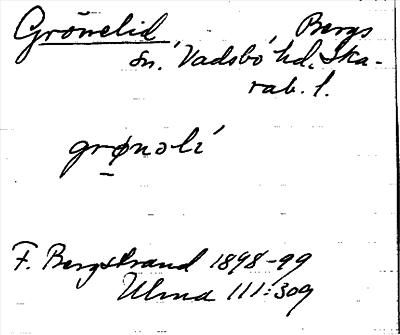 Grönelid Bergs
sn, Vadsbo hd, Ska-
rab. l.
grønolí
F. Bergstrand 1898-99
Ulma 111:309